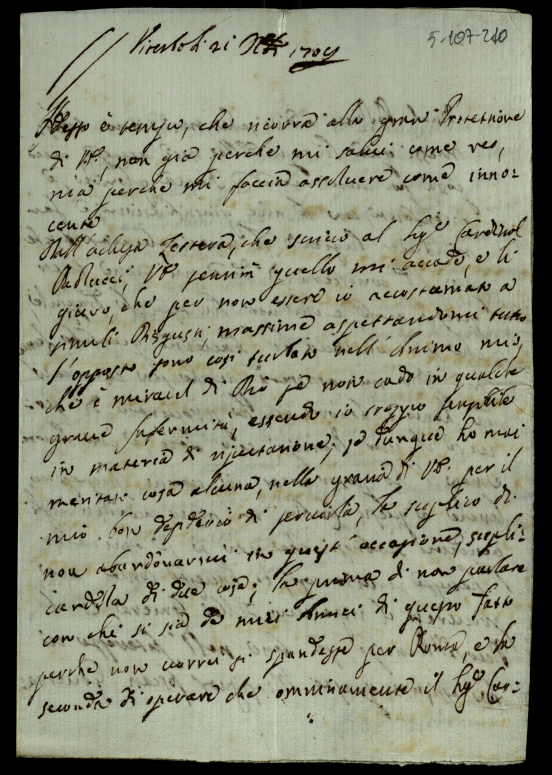 5-107-210
Viterbo li 21 1709
Adesso è tempo, che ricorra alla gran Protettione
di VS, non già perche mi salui come reo,
mà perche mi faccia assoluere come inno-
cente
Dall'aclusa Lettera, che scriuo al Sigr Cardinal
Paolucci, VS sentirà quello mi accade, e li
giuro, che per non essere io accostumato a
simili disgusti, massime aspettandomi tutto
l'opposto sono così turbato nell'Animo mio,
che è miracol di Dio se non cado in qualche
graue Infermità, essendo io troppo sensibile
in materia di riputatione, se dunque ho mai
meritato cosa alcuna, nella gratia di VS. per il
mio bon desiderio di seruirla, la suplico di
non abandonarmi in quest'occasione, supli-
candola di due cose; la prima di non parlare
con chi si sia de miei Amici di questo fatto
perche non vorrei si spandesse per Roma, e la
seconda di operare che omninamente il Sigr Car-